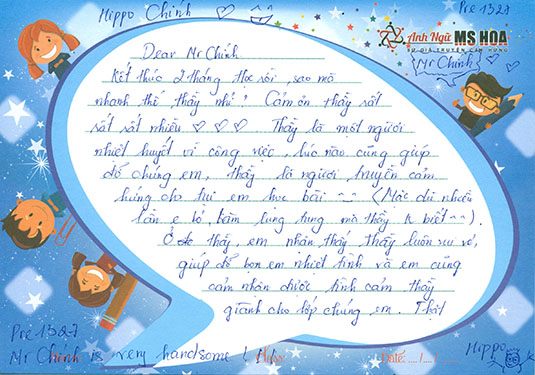 Hippo Chinh
Pre 1327
Anh Ngữ MS HOA
SỨ GIẢ TRUYỀN CẢM HỨNG
Mr Chính
Dear Mr Chính
Kết thúc 2 tháng học rồi, sao mà
nhanh thế thầy nhỉ! Cảm ơn thầy rất
rất rất nhiều ♡ ♡ ♡ Thầy là một người
nhiệt huyết vì công việc, lúc nào cũng giúp
đỡ chúng em, thầy là người truyền cảm
hứng cho tụi em học bài ^^ (Mặc dù nhiều
lần e bỏ, tụng tung mà thầy k biết ^^).
Ở thầy, em nhận thấy thầy luôn vui vẻ,
giúp đỡ bọn em nhiệt tình và em cũng
cảm nhận được tình cảm thầy
giành cho lớp chúng em. Thật
Pre 1327
Mr Chính is very handsome!
Date: .../.../...
Hippo